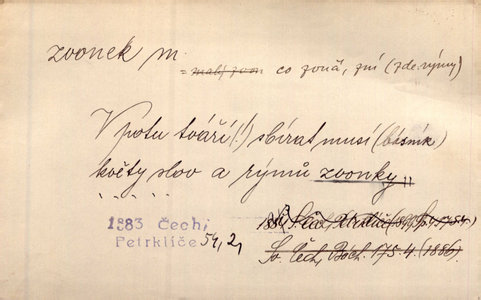 zvonek m.
= malý zvon co zvoní, zní (zde: rýmy)
V potu tváří(!) sbírat musí (básník)
květy slov a rýmů zvonky „
1883 Čech,
Petrklíče 54, 2,
Sv. Čech, Bách. 175. 4. (1886.